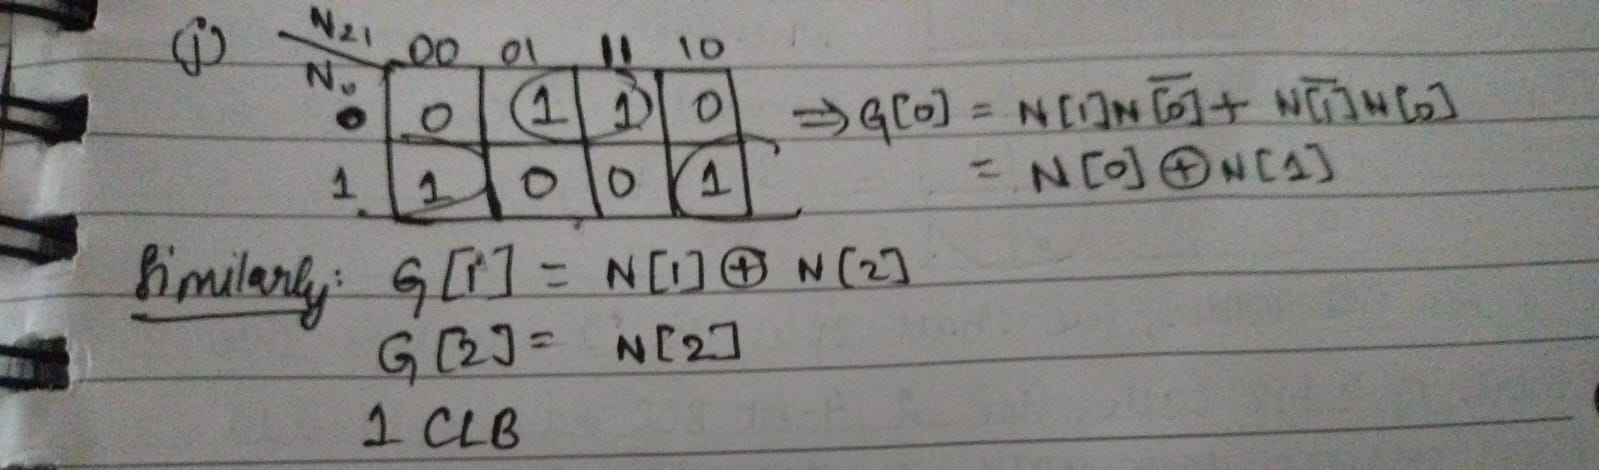 (j) N₂₁ 00 01 11 10
N₀
0 0 1 1 0 ⇒ G[0] = N[1]N[0]̅ + N[1]̅N[0]
1 1 0 0 1 = N[0] ⊕ N[1]
Similarly: G[1] = N[1] ⊕ N[2]
G[2] = N[2]
1 CLB